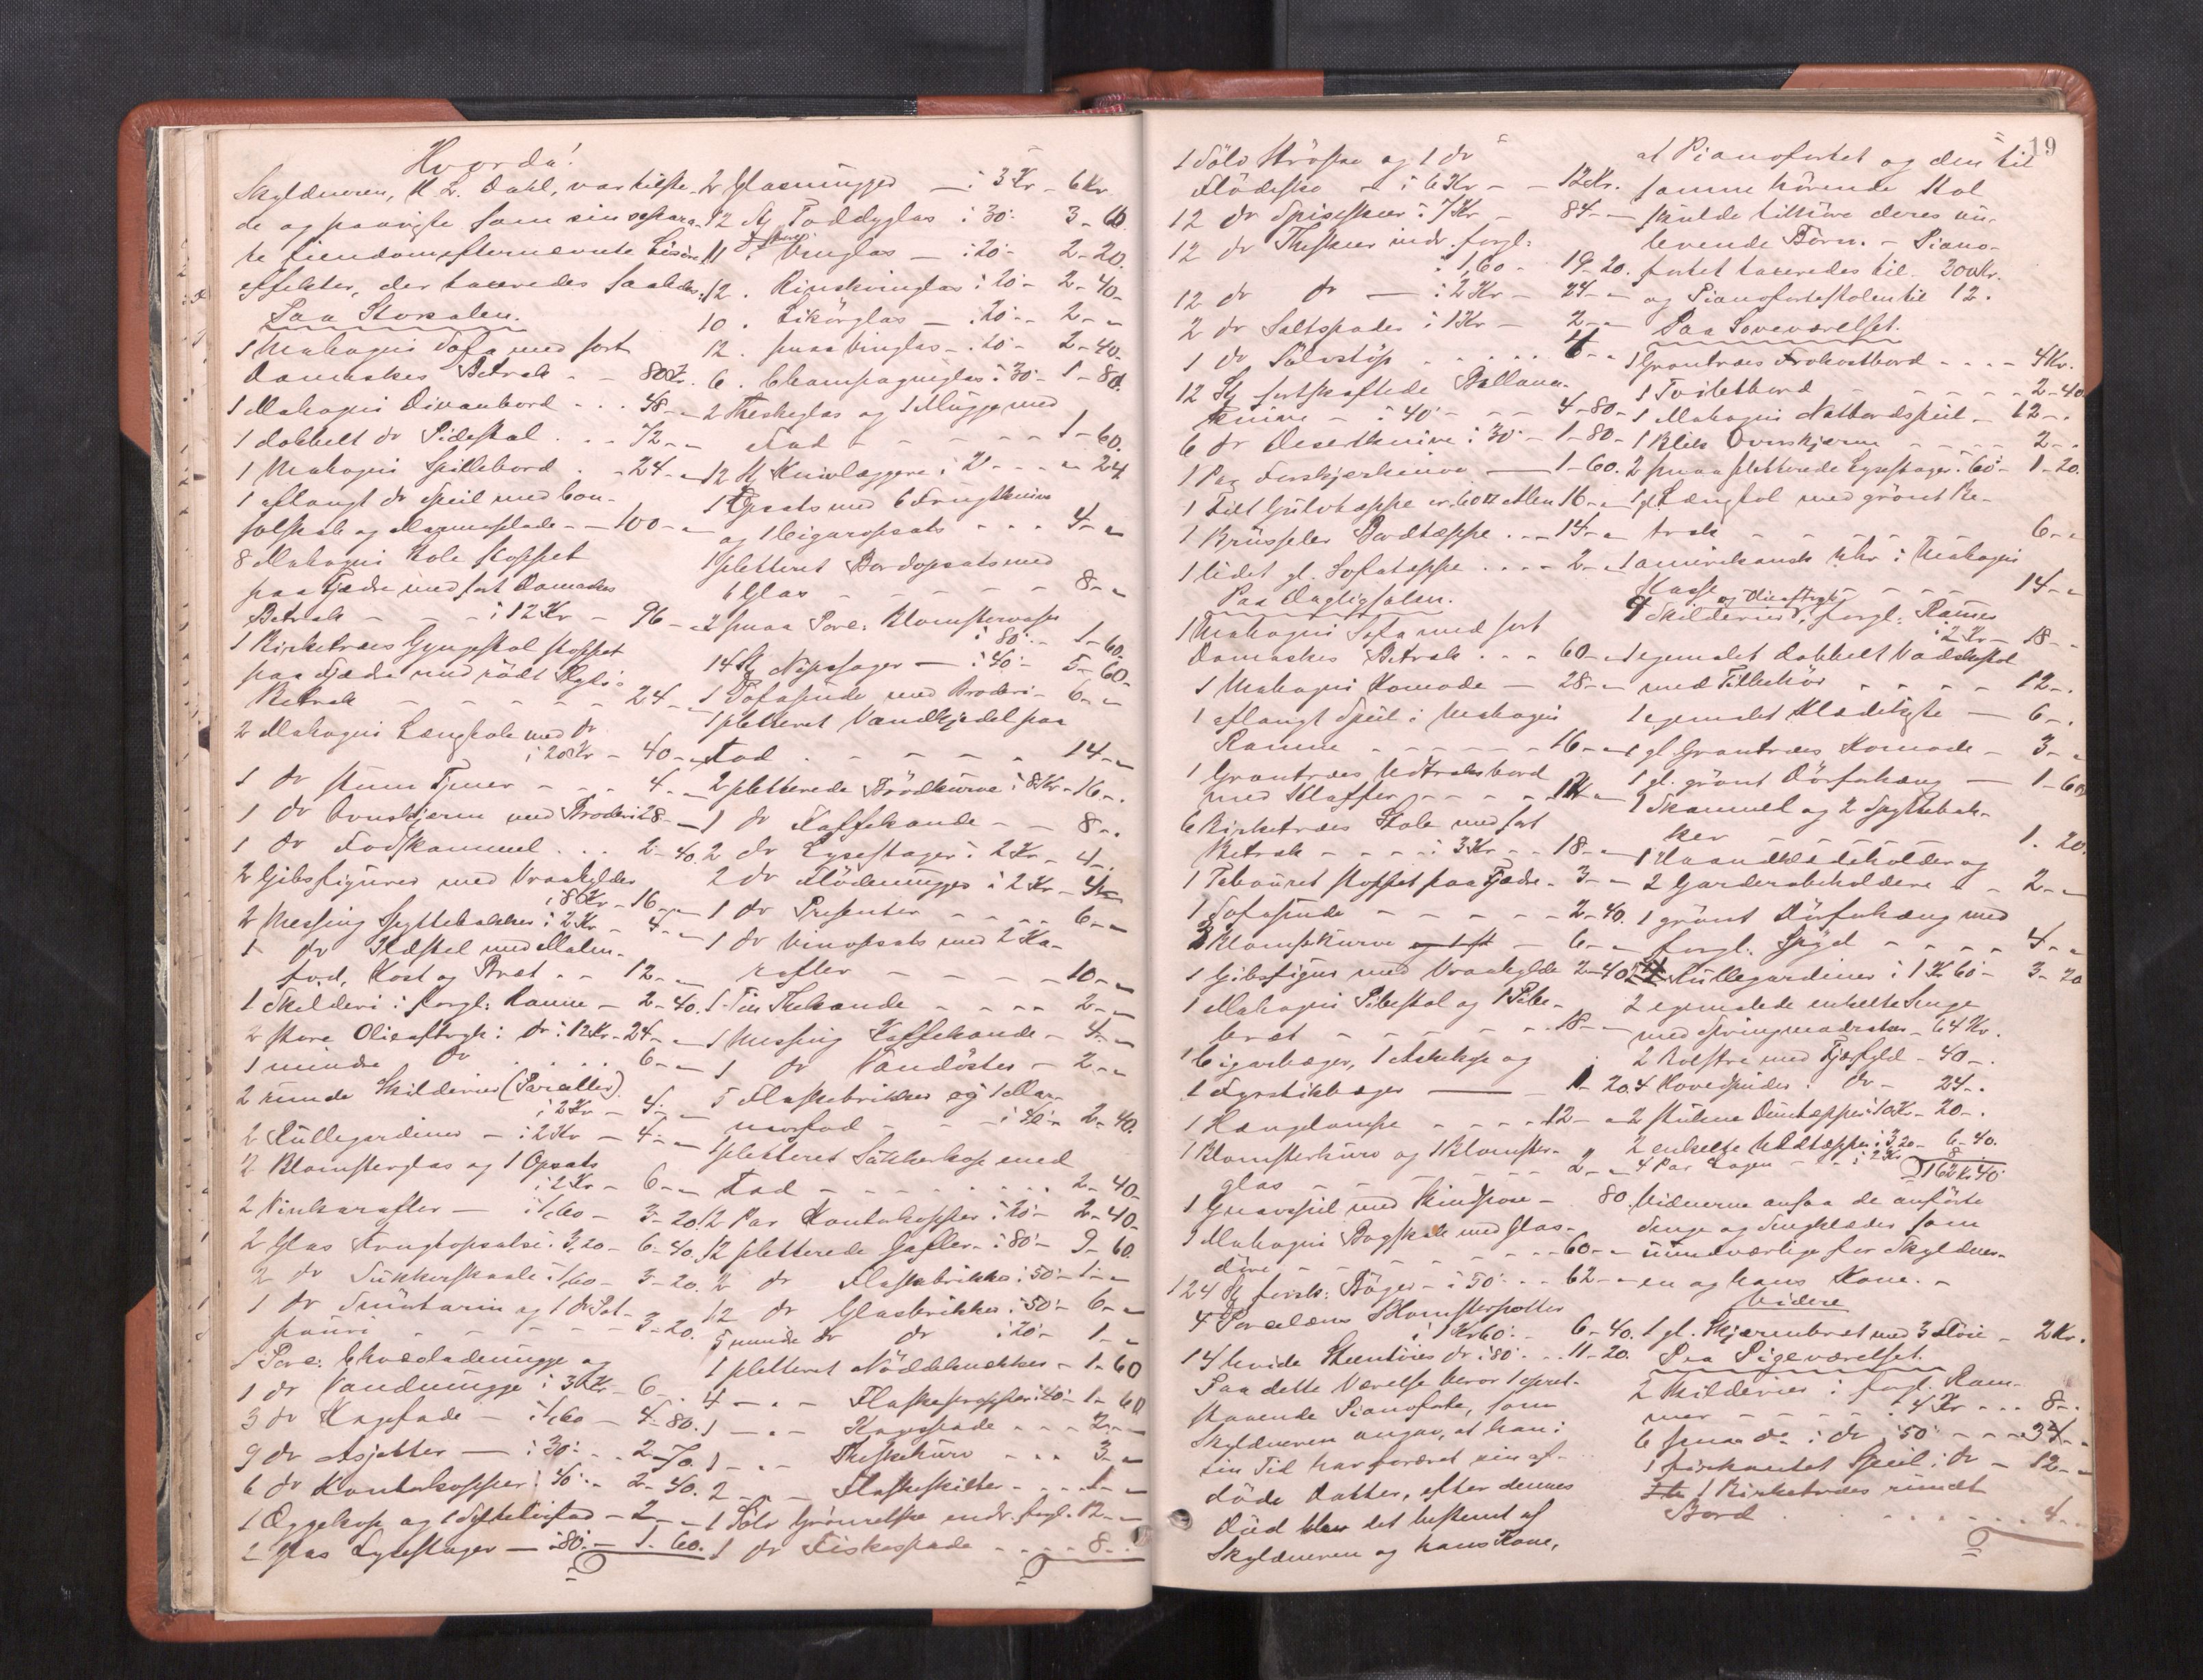 Hvorda!
Skyldneren, K L. Dahl, var tilste-
de og paaviste som sin separa-
te Eiendom efternævnte Løsøre
effekter, der taxeredes saaledes:
Paa Storsalen.
1 Mahogni Sofa med sort
Damaskes Betræk - - 80 Kr.
1 Mahogni Divanbord - - - 48 - "
1 dobbelt do Pidestal - - - 72 - "
1 Mahogni Spillebord - - 24 - "
1 aflangt do Speil med Con-
solskab og Marmorplade - - 100 - "
8 Mahogni Stole stoppet
paa Fjædre med sort Damaskes
Betræk - - - à 12 Kr - 96 - "
1 Birketræs Gyngestol stoppet
paa Fjædre med rødt
Betræk - - - - - 24 - "
2 Mahogni Lænestole med do
à 20 Kr - 40 - "
1 do stum Tjener - - - 4 - "
1 do Ovnskjerm med Broderi 28 - "
1 do Fodskammel - - - 2 - 40.
2 Gibsfigurer med Vraahylder
à 8 Kr - 16 - "
2 Messing Spyttebakker à 2 Kr - 4 - "
1 do med Malm-
fod, Kost og Bræt - - 12 - "
1 Skilderi i forgl: Ramme - 2 - 40.
2 store Olieaftryk i do à 12 Kr - 24 - "
1 mindre do - - - 6 - "
2 runde Skilderier
à 2 Kr - 4 - "
2 Rullegardiner - à 2 Kr - 4 - "
2 Blomsterglas og 1 Opsats
à 2 Kr - 6 - "
2 Vinkarafler - à 1,60 - 3 - 20.
2 Glas Frugtopsatse à 3,20 - 6 - 40.
2 do Sukkerskaale à 1,60 - 3 - 20.
1 do og 1 do Pot-
pouri - - - - - 3 - 20.
1 Porc: Chocolademugge og
1 do Vandmugge à 3 Kr - 6 -
3 do Kagefade - à 1,60 - 4 - 80.
9 do Asjetter - à 30 - - 2 - 70.
6 do Kontorkopper à 40 - - 2 - 40.
1 Æggekop og - 2 - "
2 Glas Lysestager - à 80 - 1 - 60.
2 Glasmugger - à 3 Kr - 6 Kr
12 St Toddyglas à 30 - 3 - 60.
11 " Vinglas - à 20 - 2 - 20.
12 . Rinskvinglas à 20 - 2 - 40.
10 . Likørglas - à 20 - - 2 - "
12 . smaa Vinglas - à 20 - 2 - 40.
6 . Champagneglas à 30 - 1 - 80.
2 og 1 Mugge med
Fad - - - - - - 1 - 60.
12 St Knivlæggere à - - - " 24
1 Opsats med 6 Frugtknive
og 1 Cigaropsats - - - 4 - "
1 pletteret Bordopsats med
6 Glas - - - - - 8 - "
2 smaa Porc: Blomstervaser
à 80 - - 1 - 60.
14 St Nipssager - à 40 - 5 - 60.
1 Sofapude med Broderi - 6 - "
1 pletteret Vandkjedel paa
Fod - - - - - 14 - "
2 pletterede Brødkurve à 8 Kr - 16 - .
1 do Kaffekande - - 8 - .
2 do Lysestager à 2 Kr - 4 - .
2 do Flødemugger à 2 Kr - 4 -
1 do Presenter - - - - 6 - "
1 do Vinopsats med 2 Ka-
rafler - - - - - 10 - "
1 Tin Thekande - - - - 2 - "
1 Messing Kaffekande - 4 - "
1 do Vandøster - - 2 - "
5 Flaskebrikker og 1 Mar-
morfad - - - à 40 - 2 - 40.
1 pletteret Sukkerkop med
Fad - - - - - - 2 - 40.
12 Par Kontorkopper à 20 - 2 - 40.
12 pletterede Gafler - à 80 - 9 - 60.
2 do Flaskebrikker à 50 - 1 - "
12 do Glasbrikker à 50 - 6 - "
5 mindre do do à 20 - 1 - "
1 pletteret Nøddeknækker - 1 - 60
4 - " - Flaskepropper à 40 - 1 - 60
1 - " - Kagespade - - - 2 - "
1 - " - Theskekurv - - - 3 - "
2 - " - Flaskeskilter - - - 1 - "
1 Sølv indv. forgl. 12 - "
1 do Fiskespade - - - - 8 - .
19
1 Sølv Strøske og 1 do
Flødeske - à 6 Kr - - 12 Kr.
12 do Spiseskeer à 7 Kr - 84 - -
12 do Theskeer indv. forgl:
à 1,60 - 19 - 20.
12 do do - à 2 Kr - 24 - "
2 do Saltspader à 1 Kr - 2 - "
1 do - - - - -
12 St sortskaftede Ballance-
knive - à 40 - - - 4 - 80 -
6 do Desertknive à 30 - 1 - 80 -
1 Par Forskjærknive - 1 - 60.
1 Filt Gulvtæppe ca 60 Alen 16 - "
1 Brüsseler Bordtæppe - - - 14 - "
1 lidet gl. Sofatæppe - - - - 2 - "
Paa Dagligsalen.
1 Mahogni Sofa med sort
Damaskes Betræk - - - 60 - "
1 Mahogni Komode - 28 - "
1 aflangt Speil i Mahogni
Ramme - - - - - - 16 - "
1 Grantræs Udtræksbord
med Klaffer - - - - -
6 Birketræs Stole med sort
Betræk - - - - à 3 Kr - - 18 - "
1 Tabouret stoppet paa Fjædre - 3 - "
1 Sofapude - - - - - 2 - 40.
3 Blomsterkurve - 6 - "
1 Gibsfigur med Vraahylde 2 - 40
1 Mahogni Pibestol og 1 Pibe-
bræt - - - - - - 18 - "
1 Cigarbæger, 1 Askekop og
1 Fyrstikbæger - 1 - 20.
1 Hængelampe - - - - 12 - "
1 Blomsterkurv og 1 Blomster-
glas - - - - - - - 2 - "
1 Gnavspil med Skindpose - 80.
1 Mahogni Bogskab med Glas-
døre - - - - - - - 60 - "
124 St forsk: Bøger - à 50 - - 62 - "
4 Porcelæns Blomsterpotter
à 1 Kr 60 - - 6 - 40.
14 hvide Steentøies do à 80 - - 11 - 20.
Paa dette Værelse beror 1 opret-
staaende Pianoforte, som
Skyldneren angav, at han i
sin Tid har foræret sin af-
døde Datter, efter dennes
Død blev det bestemt af
Skyldneren og hans Kone,
at Pianofortet og den til
samme hørende Stol
skulde tilhøre deres nu-
levende Børn. - Piano-
fortet taxeredes til - 300 Kr.
og Pianofortestolen til 12.
Paa Soveværelset.
1 Grantræs Frokostbord - - - - 4 Kr.
1 Toiletbord - - - - - 2 - 40
1 Mahogni Natbordspeil - 12 - .
1 Blik Ovnskjerm - - - - 2 - .
2 smaa pletterede Lysestager à 60 - 1 - 20.
1 gl. Lænestol med grønt Be-
træk - - - - - - 6 - "
1 amerikansk Uhr i Mahogni
Kasse - - - - - 14 - "
9 Skilderier og Olieaftryk i forgl: Rammer
à 2 Kr - 18 - -
1 egemalet dobbelt Vadskestol
med Tilbehør - - - - - 12 - .
1 egemalet Klædekiste - 6 - .
1 gl Grantræs Komode - 3 - "
1 gl. grønt Dørforhæng - 1 - 60
1 Skammel og 2 Spyttebak-
ker - - - - - - - 1. 20.
1 Haandklædeholder og
2 Garderobeholdere - - 2 - "
1 grønt Dørforhæng med
forgl. Spyd - - - - - 4 - "
2 Rullegardiner à 1 Kr 60 - 3 - 20
2 egemalede enkelte Senge
med Springmadrasser - 64 Kr.
2 Bolstre med Fjærfyld - 40 - .
4 Hovedpuder do - 24 - .
2 stukne Duntæpper à 10 Kr - 20 - .
2 enkelte Uldtæpper à 3,20 - 6 - 40.
4 Par Lagen - - à 2 Kr 8
162 Kr 40
Vidnerne ansaa de anførte
Senge og Sengklæder som
uundværlige for Skyldner-
en og hans Kone. -
Videre
1 gl. Skjærmbræt med 3 Fløie - 2 Kr.
Paa Pigeværelset.
2 Skilderier i forgl. Ram-
mer - - - - à 4 Kr - - - 8 - .
6 smaa do i do à 50 - - - 3 - "
1 firkantet Speil i do - 12 - "
1 Birketræs rundt
Bord - - - - - - - 4 - .